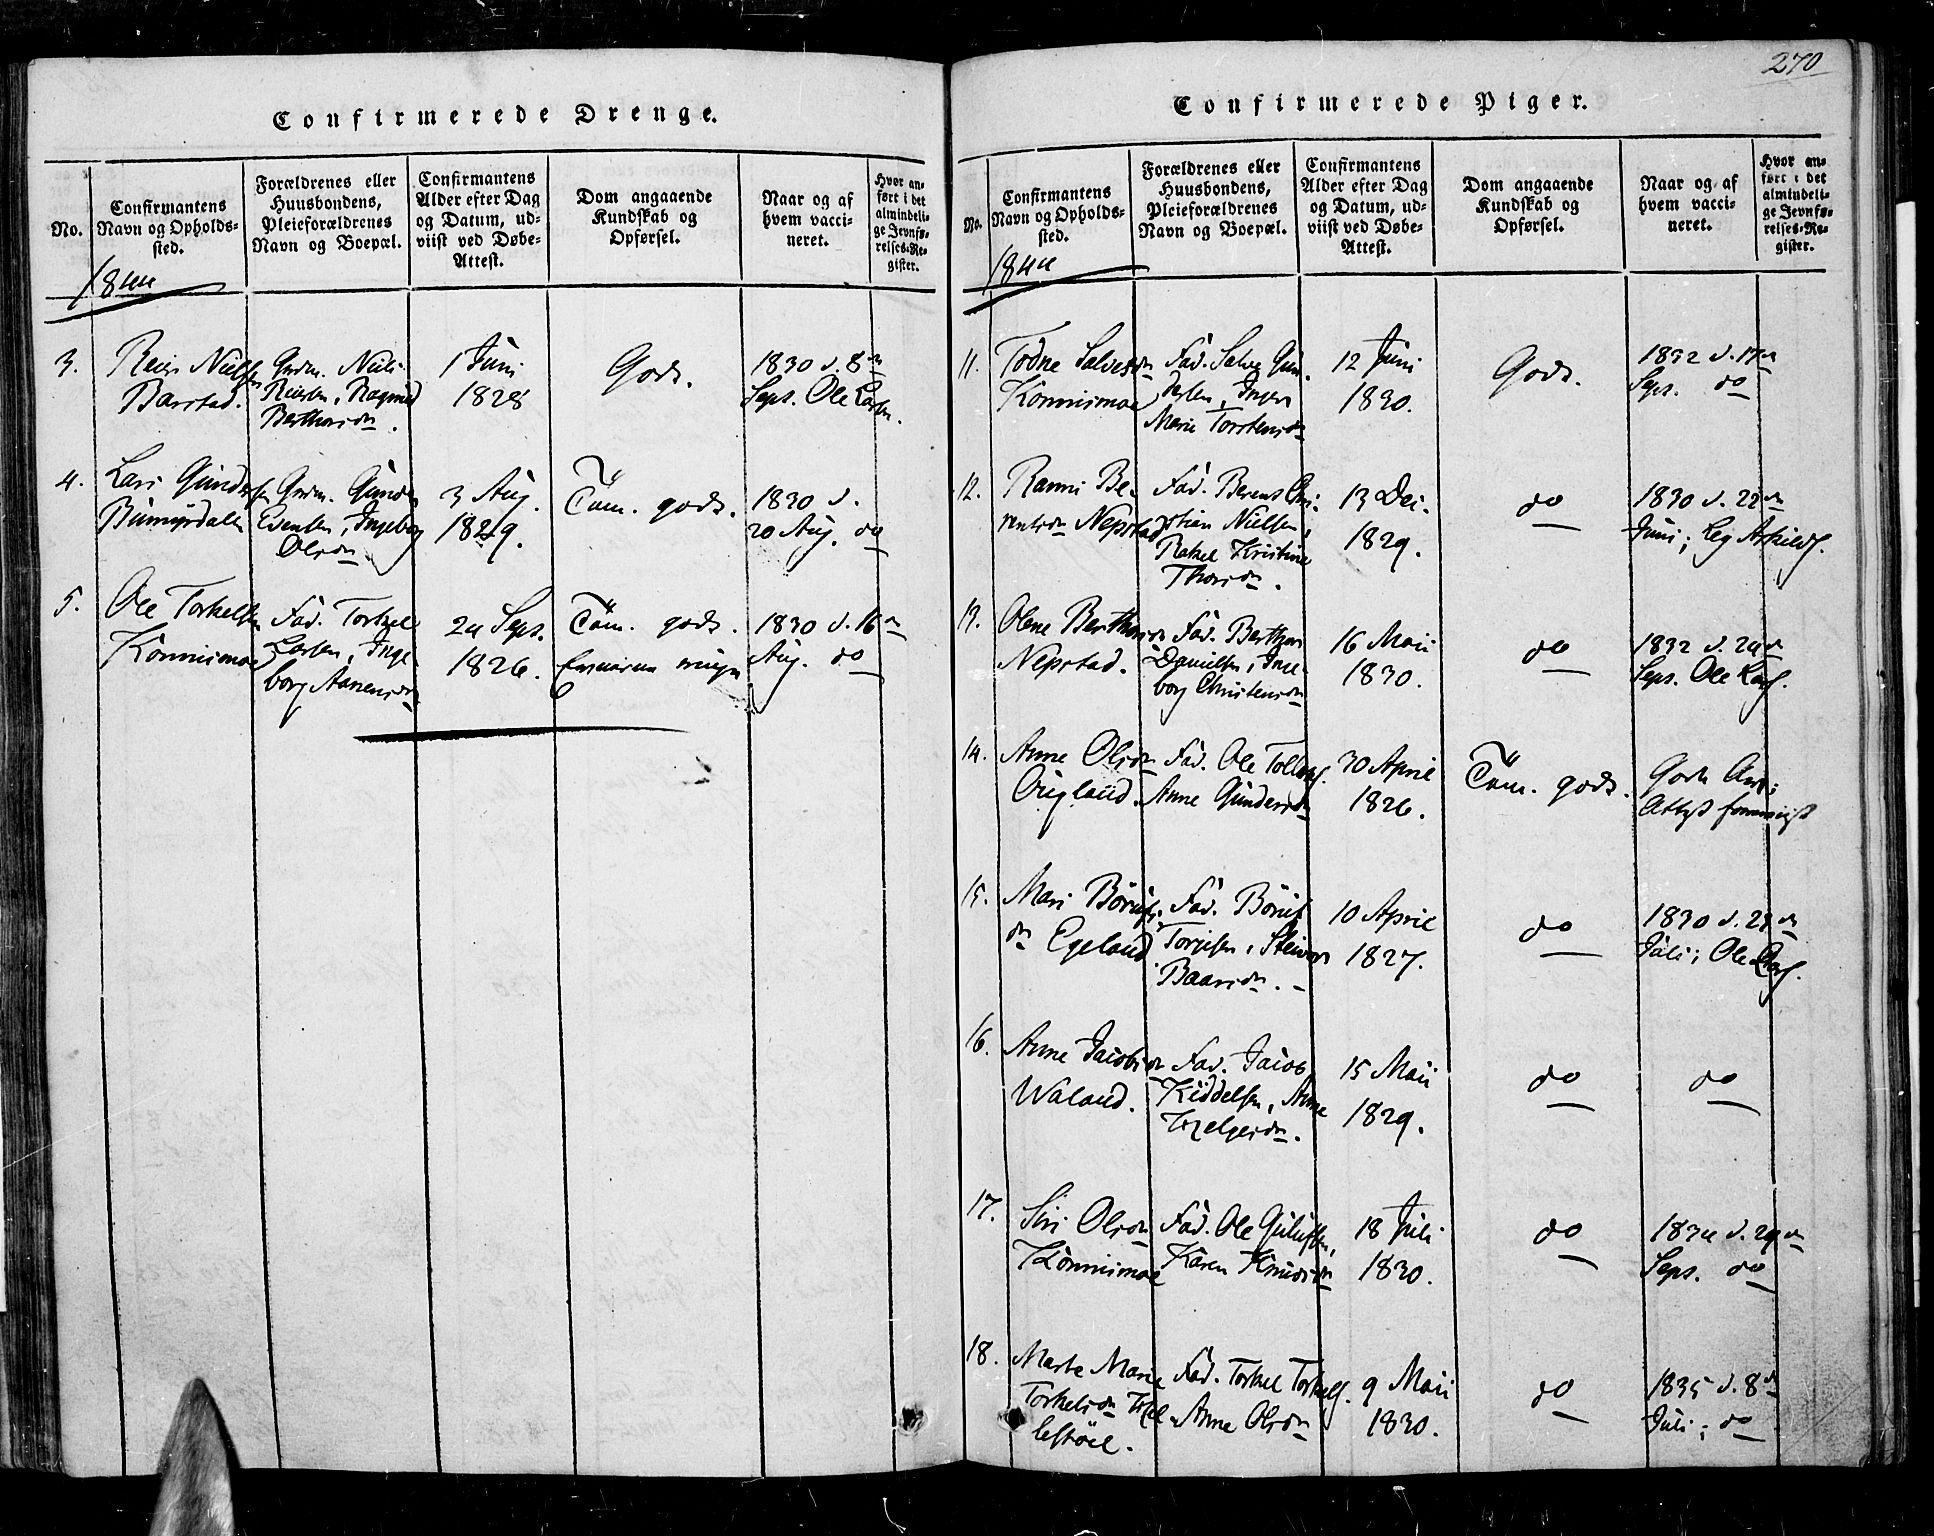 Confirmerede Drenge.
No.
Confirmantens
Navn og Opholds-
sted.
Forældrenes eller
Huusbondens,
Pleieforældrenes
Navn og Boepæl.
Confirmantens
Alder efter Dag
og Datum, ud-
viist ved Døbe-
Attest.
Dom angaaende
Kundskab og
Opførsel.
Naar og af
hvem vacci-
neret.
Hvor an-
ført i det
almindeli-
ge Jevnfø-
relses-Re-
gister.
1844
3.
Nielsen
Barstad.
Niels
1 Juni
1828
Gods.
1830 d. 8de
Seps. Ole Larsen.
4.
Lars Gunders
Gunder
Evensen, Ingeborg
Olsdn
3 Aug.
1829.
Tem. gods.
1830 d.
20 Aug. do
5.
Ole Torkelsen
Konnismoe
Fad. Torkel
Larsen, Inge-
borg Aanensdn
24 Seps.
1826.
Tem. gods.
1830 d. 16de
Aug. do
270
Confirmerede Piger.
No.
Confirmantens
Navn og Opholds-
sted.
Forældrenes eller
Huusbondens,
Pleieforældrenes
Navn og Boepæl.
Confirmantens
Alder efter Dag
og Datum, ud-
viist ved Døbe-
Attest.
Dom angaaende
Kundskab og
Opførsel.
Naar og af
hvem vacci-
neret.
Hvor an-
ført i det
almindeli-
ge Jevnfø-
relses-Re-
gister.
1844
11.
Todne Salvesdn
Konnismoe
Fad. Salve Gun-
dersen, Inger
Marie Torstensdn
12 Juni
1830.
Gods.
1832 d. 17de
Seps. do
12.
Ranni Be-
rentsdn Nepstad
Fad. Berent Chri-
stian Nielsen,
Rakel Kristine
Thorsdn.
13 Dec.
1829.
do
1830 d. 22de
Juni; Leg
13.
Olene Berthorsdn
Nepstad.
Fad. Berthor
Danielsen, Inge-
borg Christensdn
16 Maii
1830.
do
1832 d. 24de
Seps. Ole Lars.
14.
Anne Olsdn
Øugland.
Fad. Ole Tollevs.
Anne Gundersdn
30 April
1826.
Tem. gods.
Attest
15.
Mari Børufs-
dn Egeland
Fad. Børuf
Torjesen,
Baarsdn.
10 April
1827.
do
1830 d. 28de
Juli; Ole Lars.
16.
Anne Jacobsdn
Waland.
Fad. Jacob
Kiddelsen, Anne
Helgesdn.
15 Maii
1829.
do
do
17.
Siri Olsdn
Konnismoe
Fad. Ole Gulufsen,
Karen Knudsdn
18 Juli
1830.
do
1834 d. 29de
Seps. do
18.
Marte Marie
Torkelsdn
Fad. Torkel Torkels.
Anne Olsdn
9 Maii
1830.
do
1835 d. 8de
Juli; do